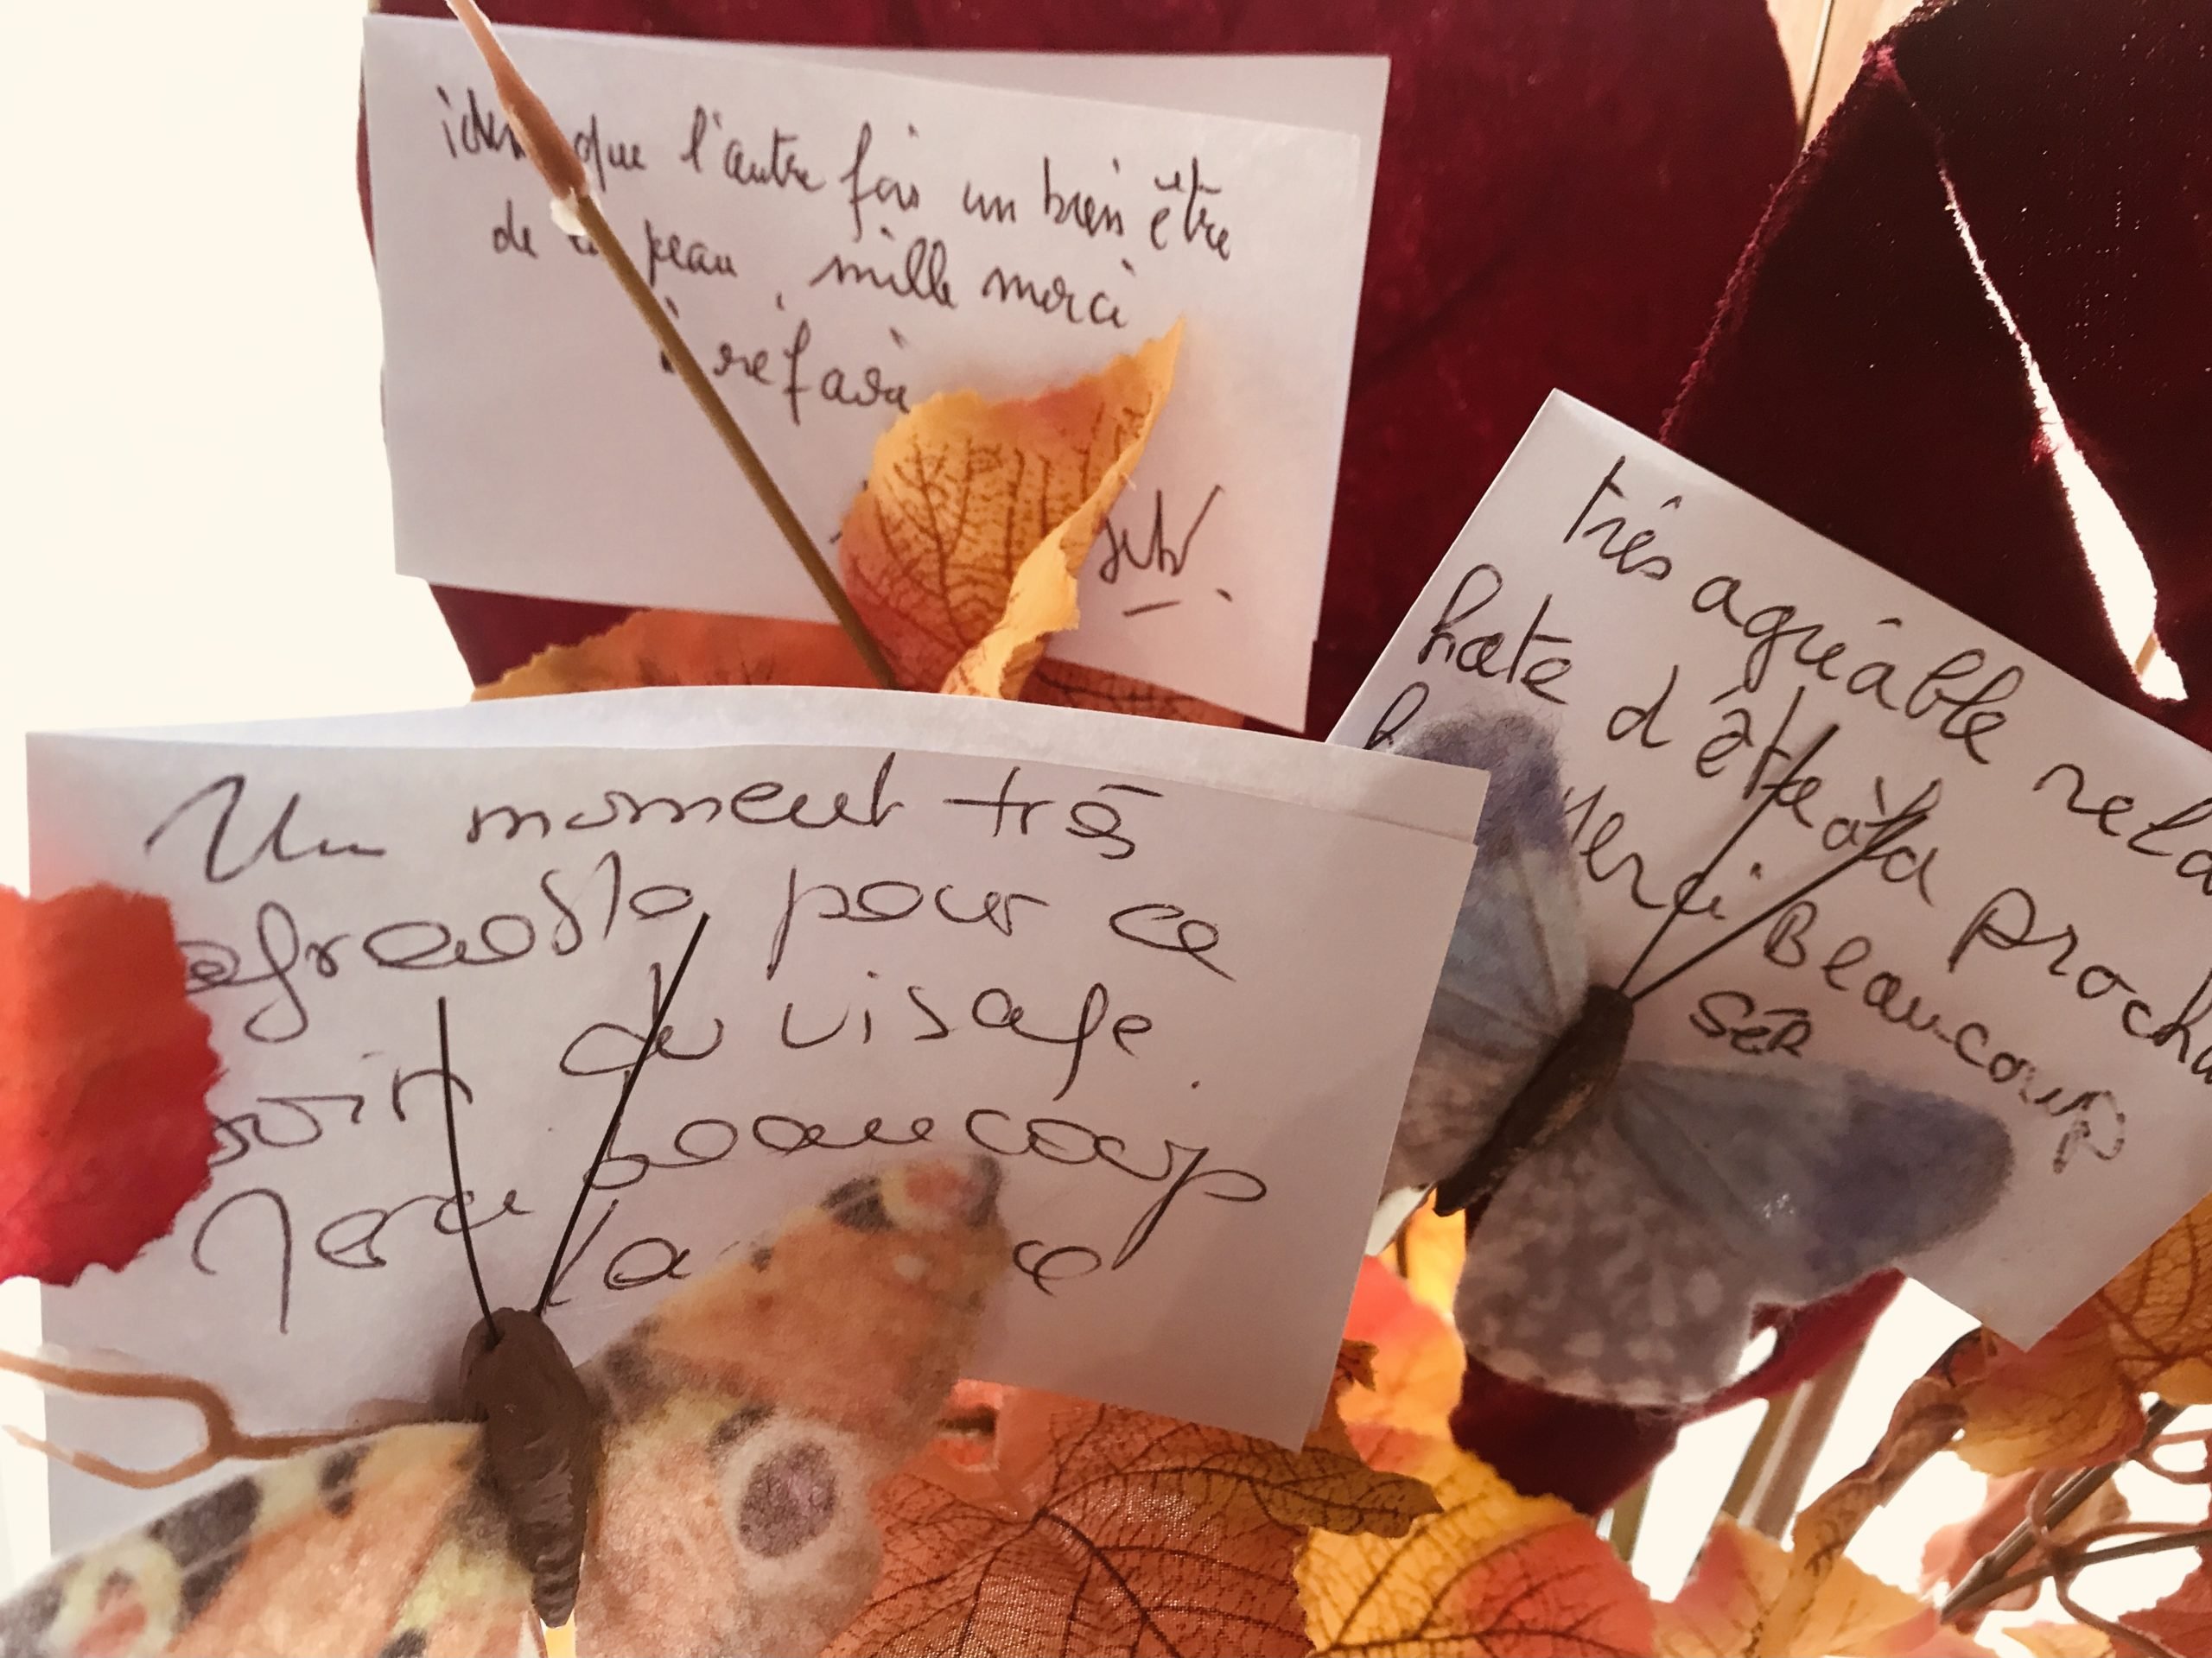 idem que l'autre fois un bien être
de la peau, mille merci
à refaire
très agréable
hate d'être à la
Merci Beaucoup
SéR
Un moment très
agreable pour ce
soin du visage.
Merci beaucoup